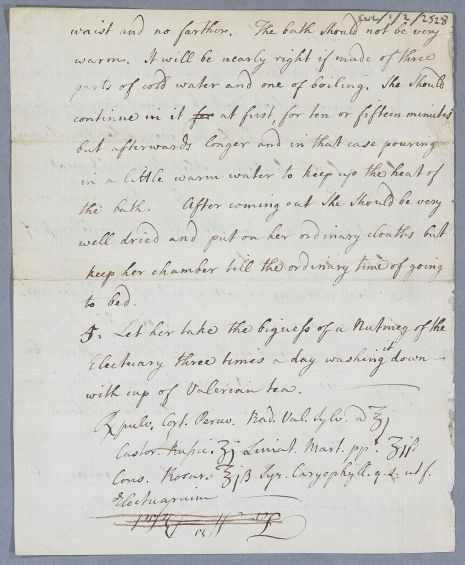 CUL/1/2/2528
waist and no farther. The bath should not be very
warm. It will be nearly right if made of three
parts of cold water and one of boiling. She should
continue in it for at first, for ten or fifteen minutes
but afterwards longer and in that case pouring
in a little warm water to keep up the heat of
the bath. After coming out She should be very
well dried and put on her ordinary cloaths but
keep her chamber till the ordinary time of going
to bed.
5. Let her take the bigness of a Nutmeg of the
Electuary three times a day washing it down
with cup of Valerian tea.
℞ pulv. Cort. Peruv. Rad. Val. Sylv. a ʒj
Castor. Russic. ʒj Limat. Mart. ppt. ʒijß
Cons. Rosar. ʒjß Syr. Caryophyll. q.s. ut f.
Electuarium